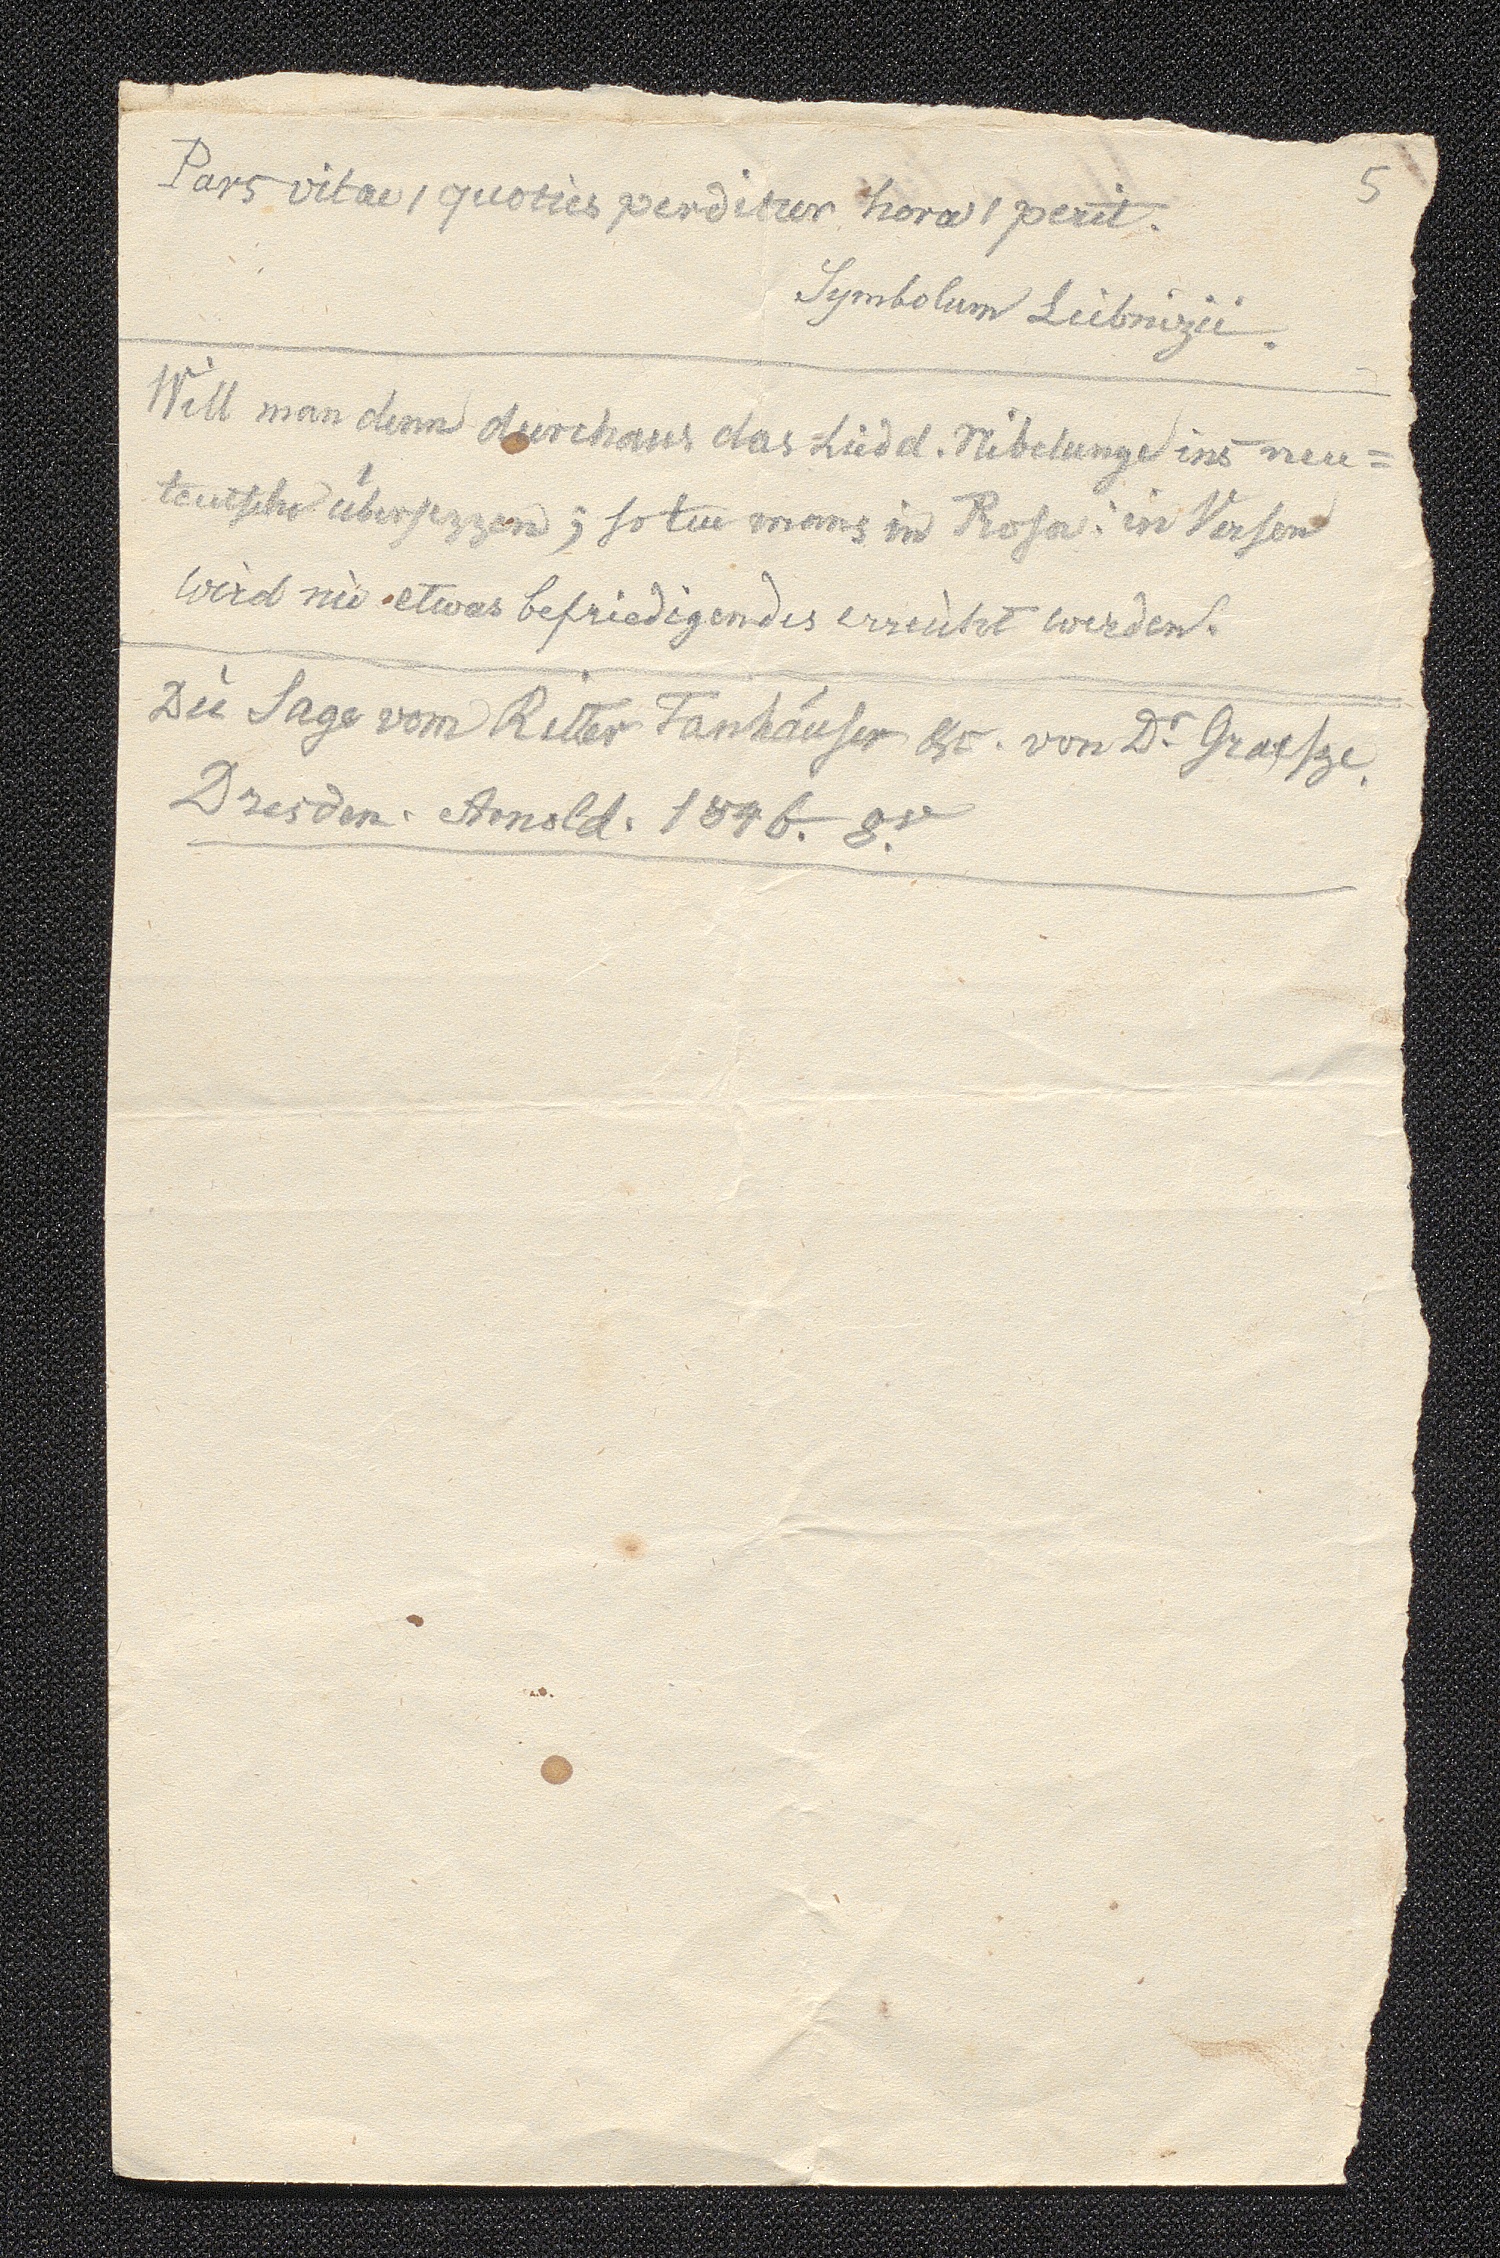 5
Pars vitae, quoties perditur hora, perit.
Symbolum Leibnizii.
Will man denn durchaus das Lied d. Nibelunge ins neu=
teutsche übersezzen; so tue mans in Prosa: in Versen
wird nie etwas befriedigendes erreicht werden.
Die Sage vom Ritter Tanhäuser &c. von Dr. Graesze.
Dresden. Arnold. 1846. 8.